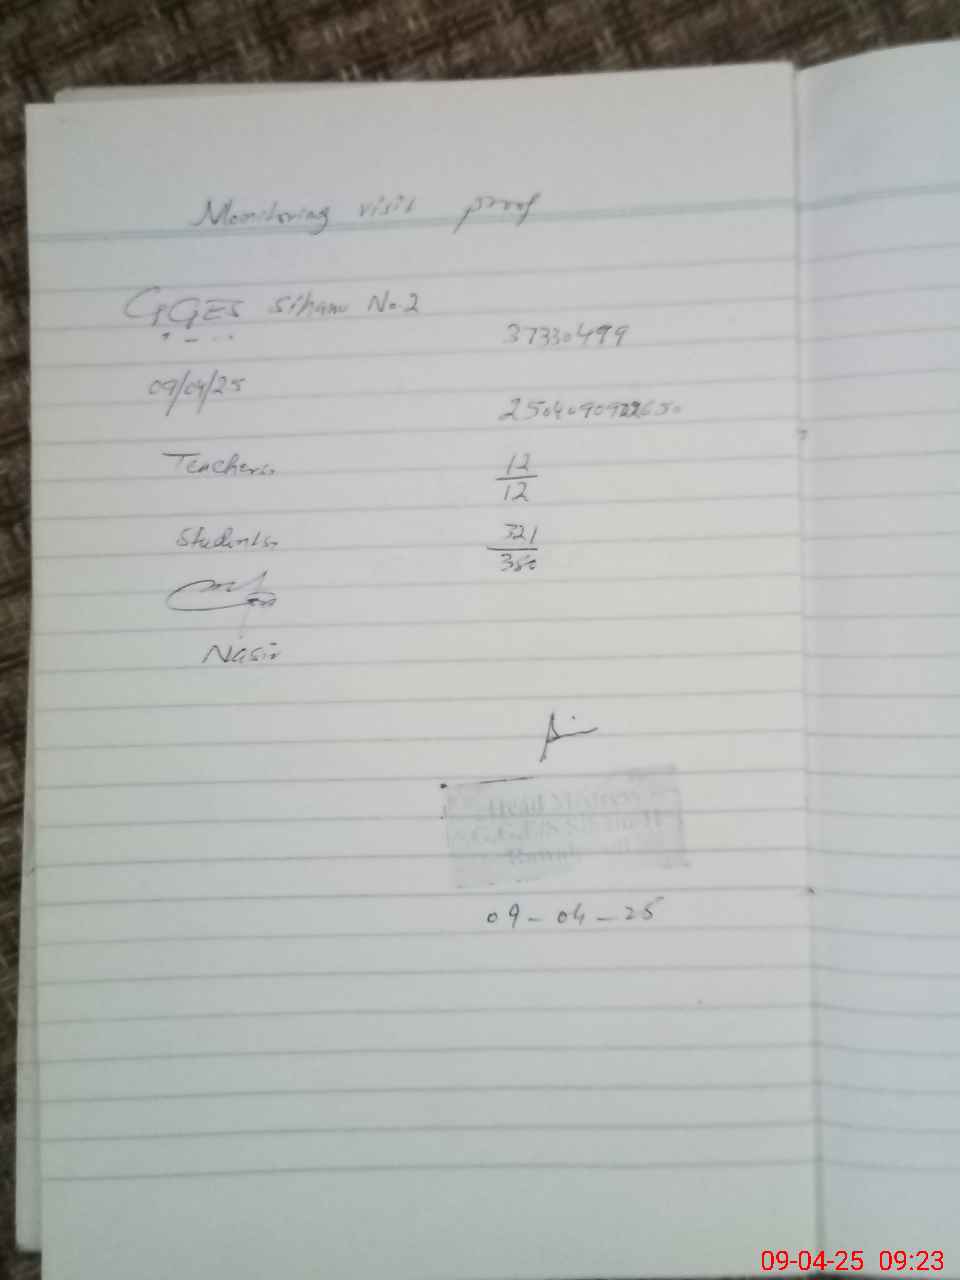 Monitoring visit proof
GGES Siham No.2
37330499
09/04/25
Teachers
12
12
Students
321
350
Nasir
Head Mistress
09-04-25
09-04-25 09:23